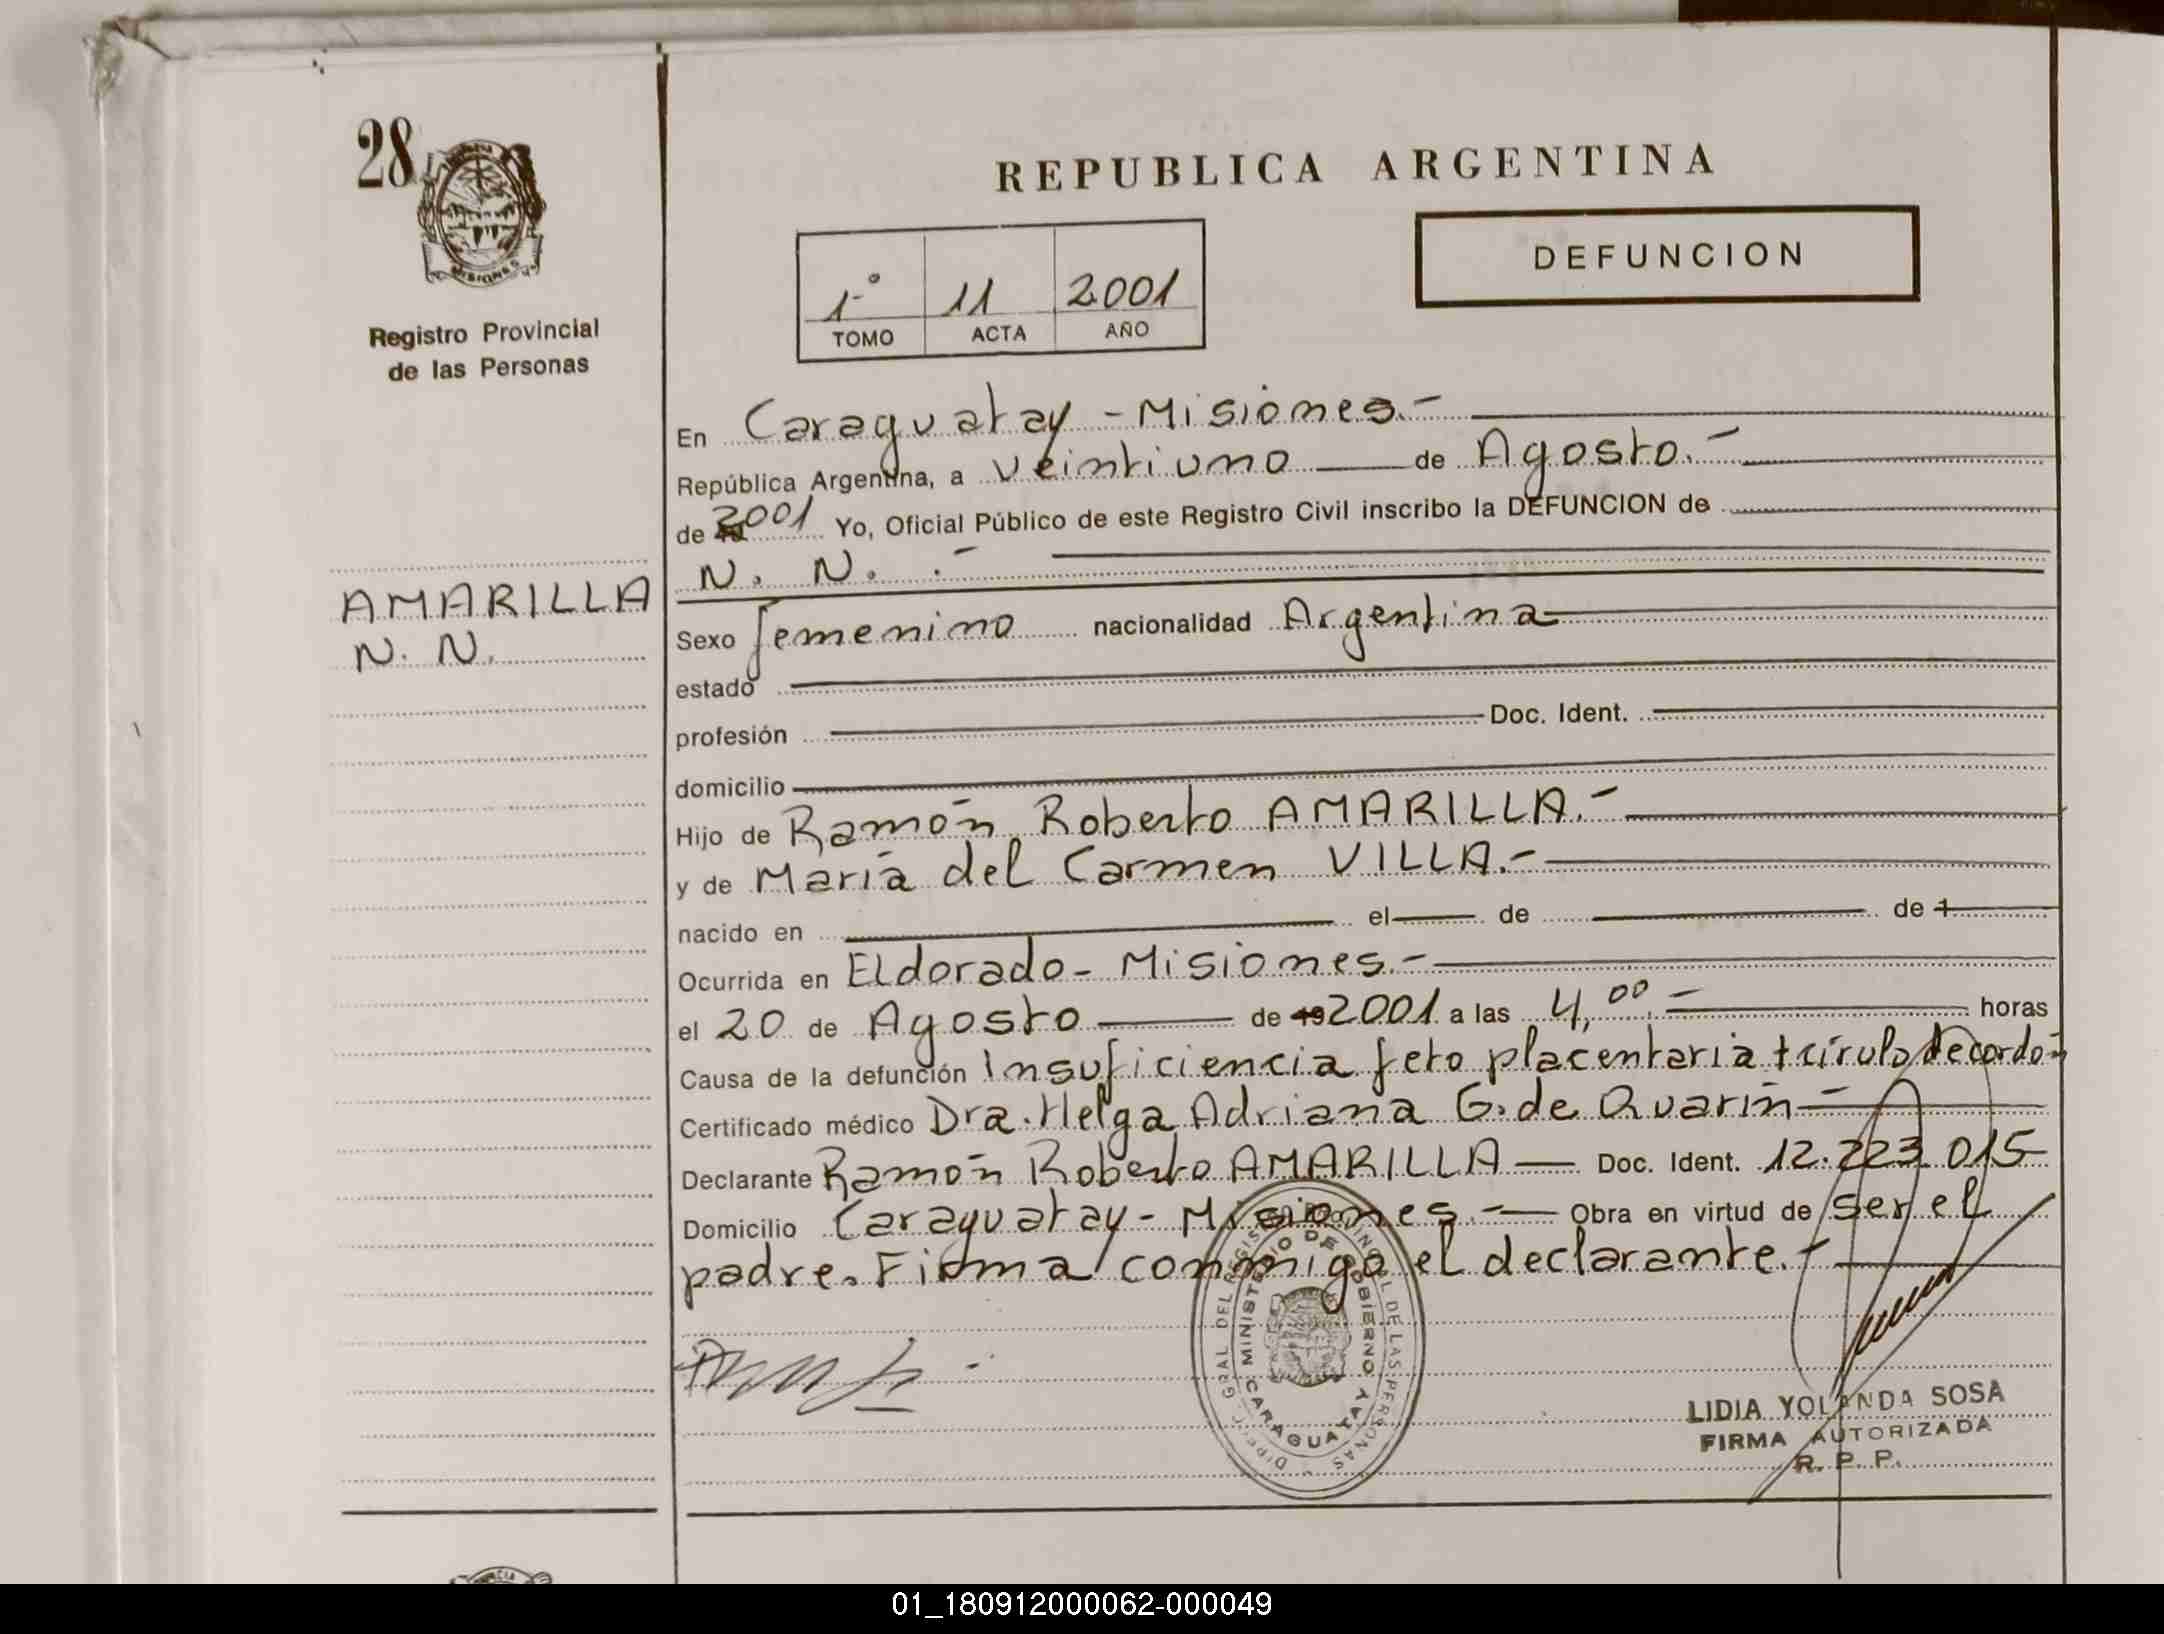 28
MISIONES
Registro Provincial
de las Personas
AMARILLA
N. N.
REPUBLICA ARGENTINA
1º 11 2001
TOMO ACTA AÑO
DEFUNCION
En Caraguatay - Misiones.-
República Argentina, a veintiuno de Agosto.-
de 2001 Yo, Oficial Público de este Registro Civil inscribo la DEFUNCION de
N. N. .-
Sexo femenino nacionalidad Argentina
estado
profesión Doc. Ident.
domicilio
Hijo de Ramón Roberto AMARILLA.-
y de María del Carmen VILLA.-
nacido en el de de 1
Ocurrida en Eldorado - Misiones.-
el 20 de Agosto de 19 2001 a las 4,00.- horas
Causa de la defunción Insuficiencia feto placentaria + círculo de cordón
Certificado médico Dra. Helga Adriana G. de Quarin-
Declarante Ramón Roberto AMARILLA Doc. Ident. 12.223.015
Domicilio Caraguatay - Misiones.- Obra en virtud de ser el
padre. Firma conmigo el declarante.-
MINISTERIO DE GOBIERNO
CARAGUATAY
LIDIA YOLANDA SOSA
FIRMA AUTORIZADA
R. P. P.
01_180912000062-000049